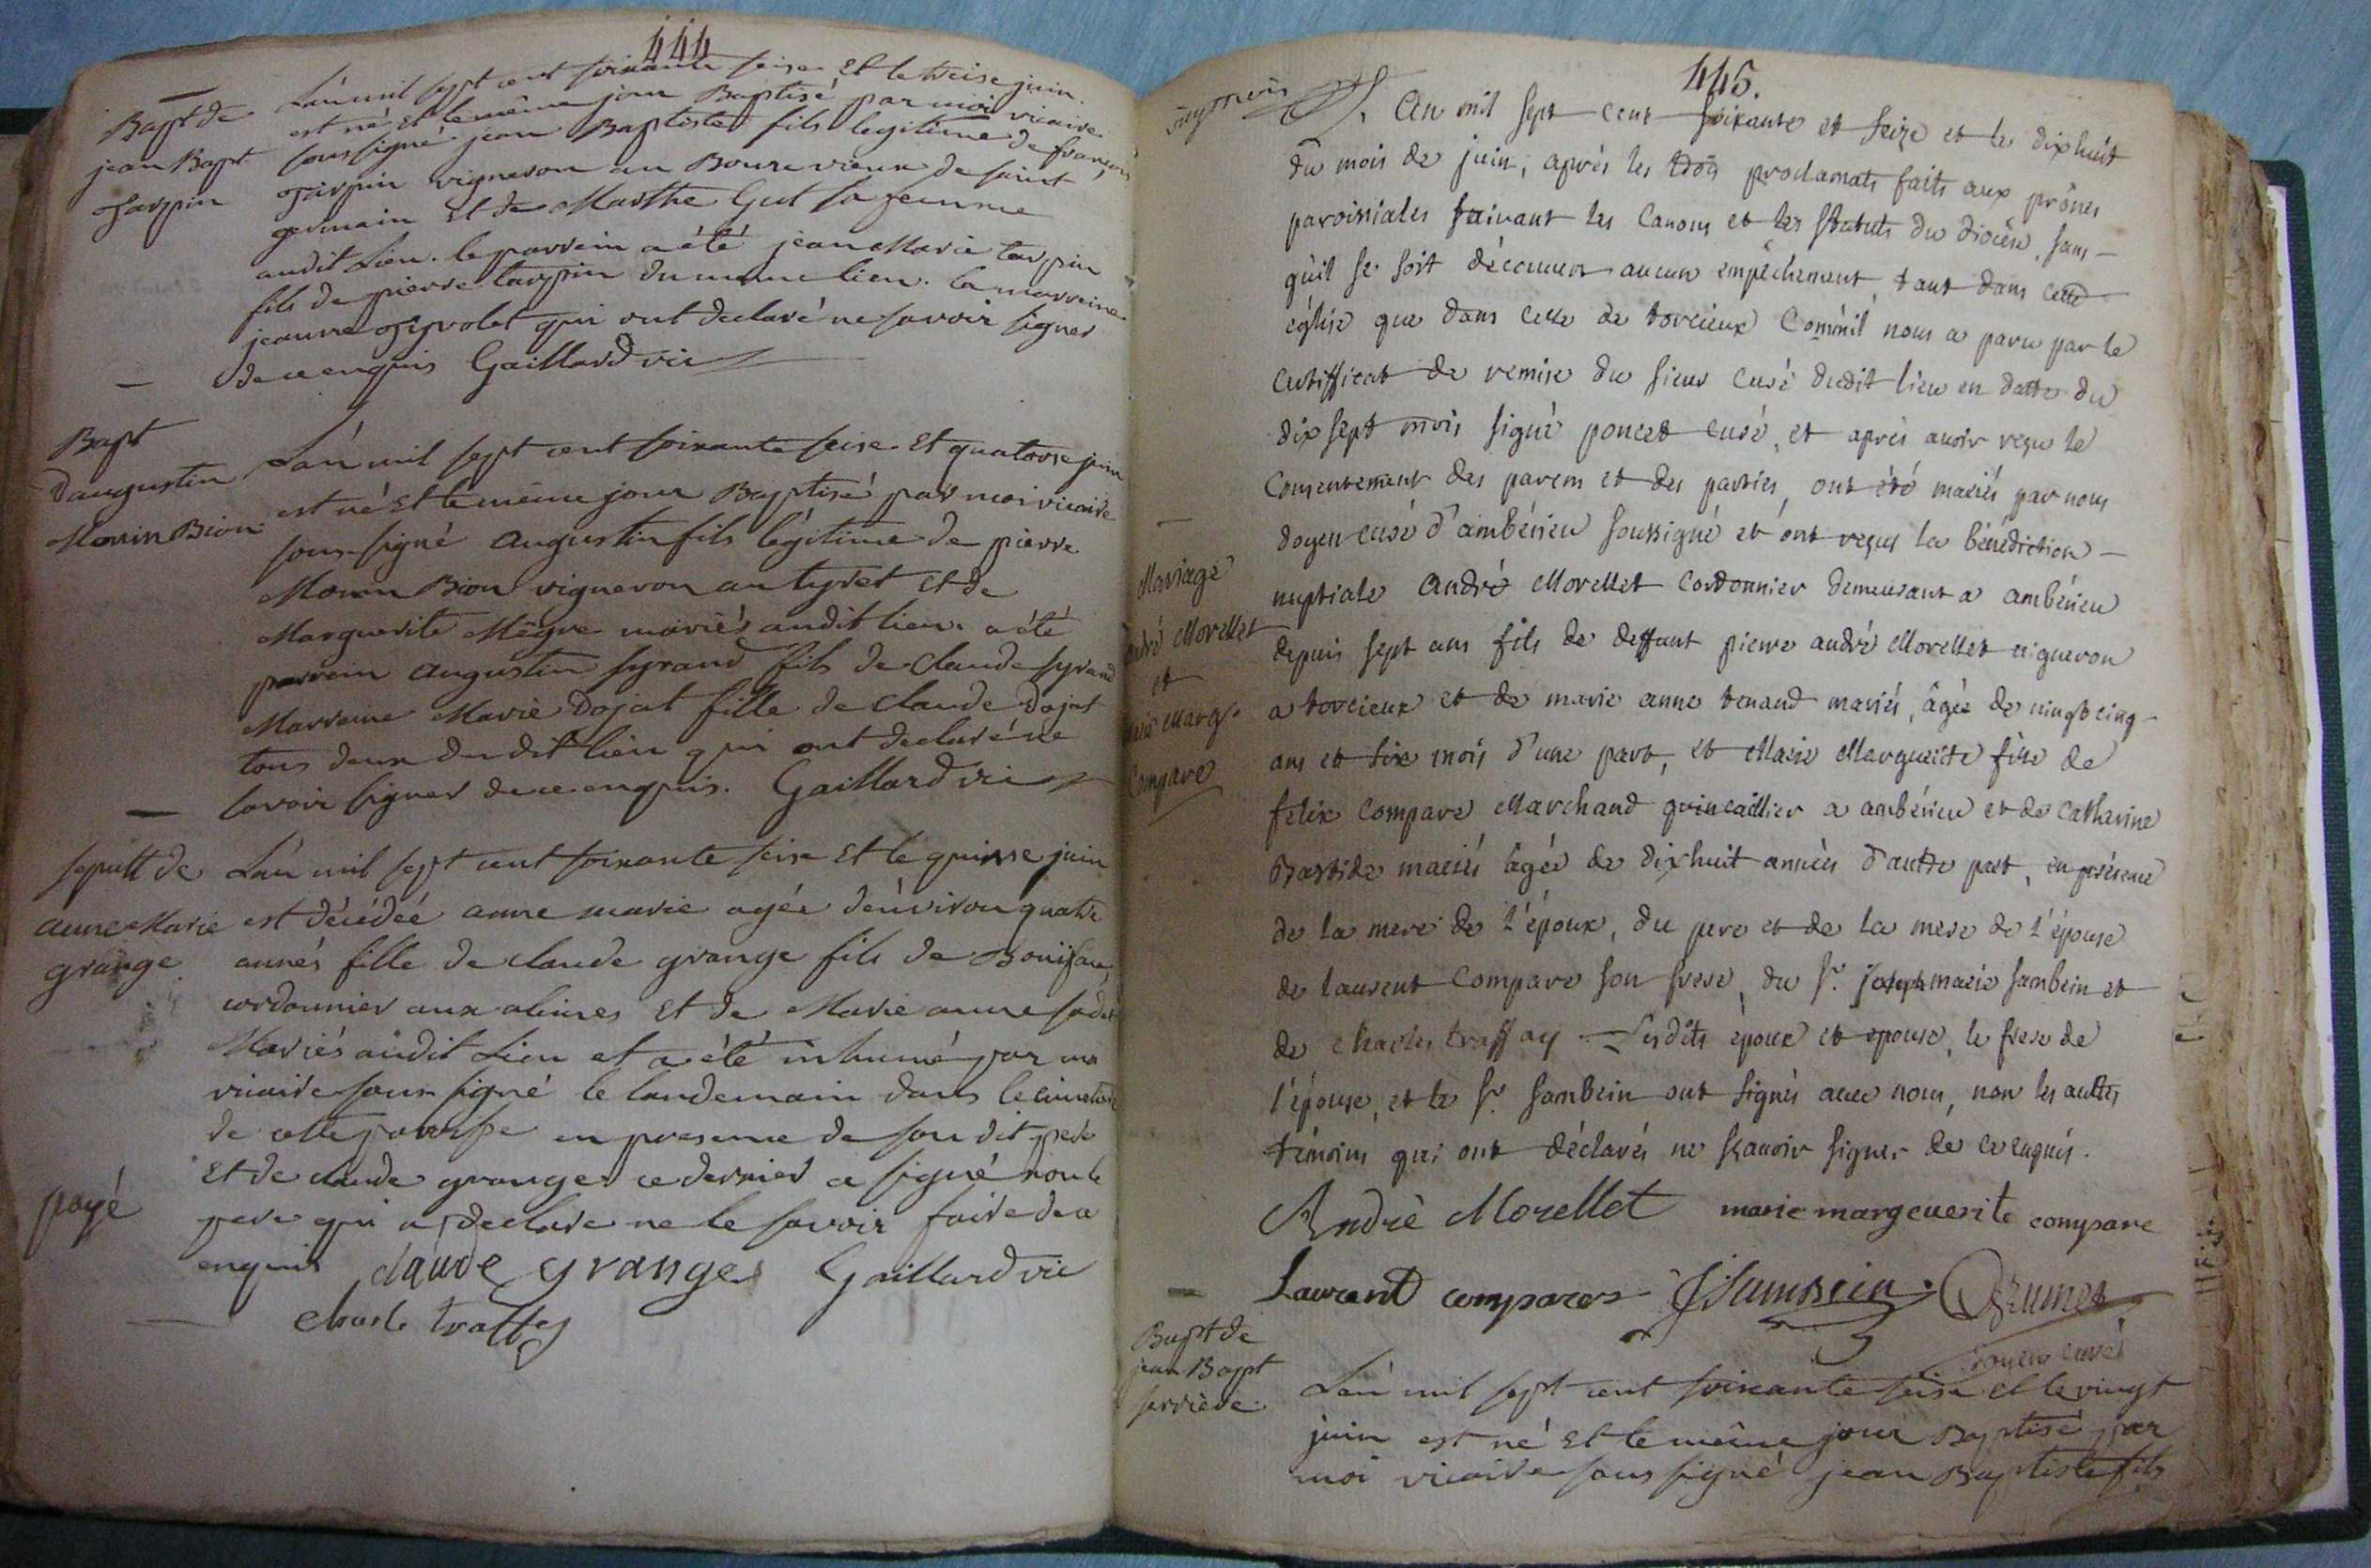 444
Bapt de
jean Bapt
Tarpin
L'an mil sept cent soixante seise Et le treise juin.
est né Et le même jour Baptisé par moi vicaire
sous signé jean Baptiste fils legitime de françois
Tarpin vigneron au Bourc vieux de saint
germain Et de Marthe Gut sa femme
audit Lieu. le parrein a été jean Marie tarpin
fils de pierre tarpin du meme lieu. la marreine
jeanne qui ont declaré ne savoir signer
de ce enquis Gaillard vic
Bapt
d'augustin
Monin Bion
L'an mil sept cent soixante seise Et quatorse juin
est né Et le même jour Baptisé par moi vicaire
sous signé augustin fils légitime de pierre
Monin Bion vigneron au tyret Et de
Marguerite Mégre mariés audit lieu. a été
parrein augustin syrand fils de claude syrand
Marreine Marie Dojat fille de claude Dojat
tous deux du dit lieu qui ont declaré ne
savoir signer de ce enquis. Gaillard vic
sepult de
anne Marie
grange
payé
L'an mil sept cent soixante seise Et le quinse juin
est décédéé anne marie agée d'environ quatre
annés fille de claude grange fils de Boniface,
cordonnier aux alimes Et de Marie anne
Mariés audit Lieu et a été inhumé par moi
vicaire sous signé le landemain dans le cimetiere
de cette paroisse en presence de son dit pere
Et de claude grange ce dernier a signé non le
pere qui a declare ne le savoir faire de ce
enquis claude grange Gaillard vic
charle traffey
445.
L'An mil sept cent soixante et seize et le dixhuit
du mois de juin, après les trois proclamats faits aux prônes
paroissiales suivant les Canons et les Statuts du diocèse, sans -
qu'il se soit découvert aucun empêchement tant dans cette
église que dans celle de torcieux Comm'il nous a paru par le
Certifficat de remise du sieur Curé dudit lieu en datte du
dix sept mois signé poncet curé, et après avoir reçu le
Consentement des parens et des parties, ont été mariés par nous
doyen curé d'ambérieu soussigné et ont reçus la bénédiction -
nuptiale André Morellet Cordonnier demeurant a ambérieu
depuis sept ans fils de deffunt pierre andré Morellet vigneron
a torcieux et de marie anne tenand mariés, âgée de vingt cinq -
ans et six mois d'une part, et Marie Marguerite fille de
felix Compare Marchand quincaillier a ambérieu et de Catharine
Bastide mariés âgée de dixhuit années d'autre part, en présence
de la mere de l'époux, du pere et de la mere de l'épouse
de laurent Compare son frere, du Sr. Joseph marie sambein et
de charles traffay - Lesdits époux et epouse, le frere de
l'épouse, et le Sr. sambein ont signés avec nous, non les autres
témoins qui ont déclarés ne sçavoir signer de ce enquis.
Mariage
André Morellet
et
Marie Marg.
Compare
Andrè Morellet marie margeuerite compare
Laurent compare
doyen curé
Bapt de
jean Bapt
serriere
L'an mil sept cent soixante seise Et le vingt
juin est né Et le même jour Baptisé par
moi vicaire sous signé jean Baptiste fils